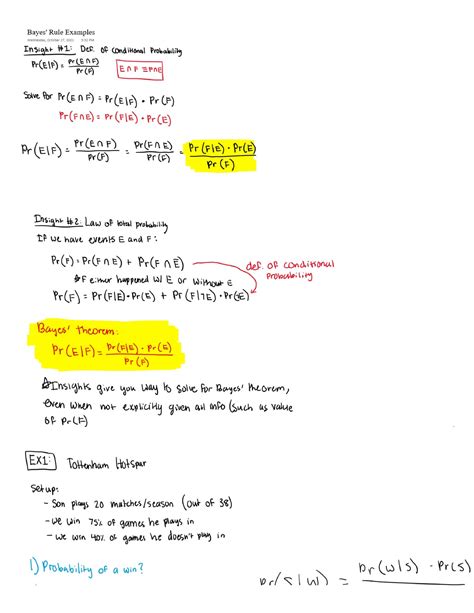 Bayes' Rule Examples
Wednesday, October 27, 2021
Insight #1: Def. of Conditional Probability
Pr(E|F) = Pr(E∩F) / Pr(F)
E∩F ≡ F∩E
Solve for Pr(E∩F) = Pr(E|F) • Pr(F)
Pr(F∩E) = Pr(F|E) • Pr(E)
Pr(E|F) = Pr(E∩F) / Pr(F) = Pr(F∩E) / Pr(F) = Pr(F|E) • Pr(E) / Pr(F)
Insight #2: Law of total probability
If we have events E and F:
Pr(F) = Pr(F∩E) + Pr(F∩E̅)
def. of conditional
probability
F either happened w/ E or without E
Pr(F) = Pr(F|E)•Pr(E) + Pr(F|¬E)•Pr(E̅)
Bayes' theorem:
Pr(E|F) = Pr(F|E) • Pr(E) / Pr(F)
Insights give you way to solve for Bayes' theorem,
even when not explicitly given all info (such as value
of Pr(F))
EX1: Tottenham Hotspur
Setup:
- Son plays 20 matches/season (out of 38)
- we win 75% of games he plays in
- we win 40% of games he doesn't play in
1) Probability of a win?
Pr(S|W) = Pr(W|S) • Pr(S)